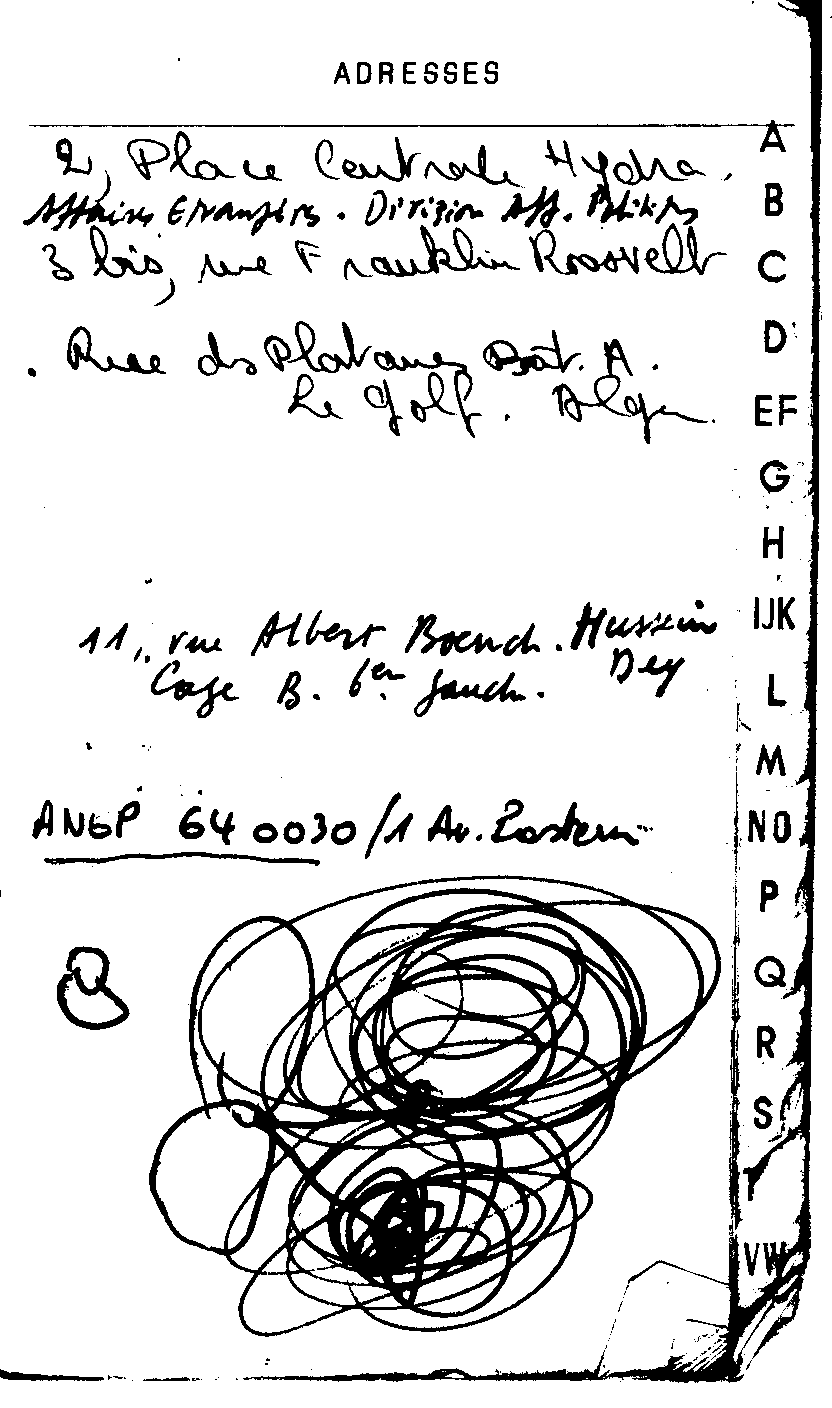 ADRESSES
2, Place Centrale Hydra.
Affaires Etrangères. Division Aff. Politiques
3 bis, rue Franklin Roosvelt
. Rue des Platanes Bât. A.
Le Golf. Alger.
11, rue Albert Boench. Hussein
Dey
Cage B. 6en gauch.
ANEP 64 0030/1 Av. Pasteur
A
B
C
D
EF
G
H
IJK
L
M
NO
P
Q
R
S
T
VW